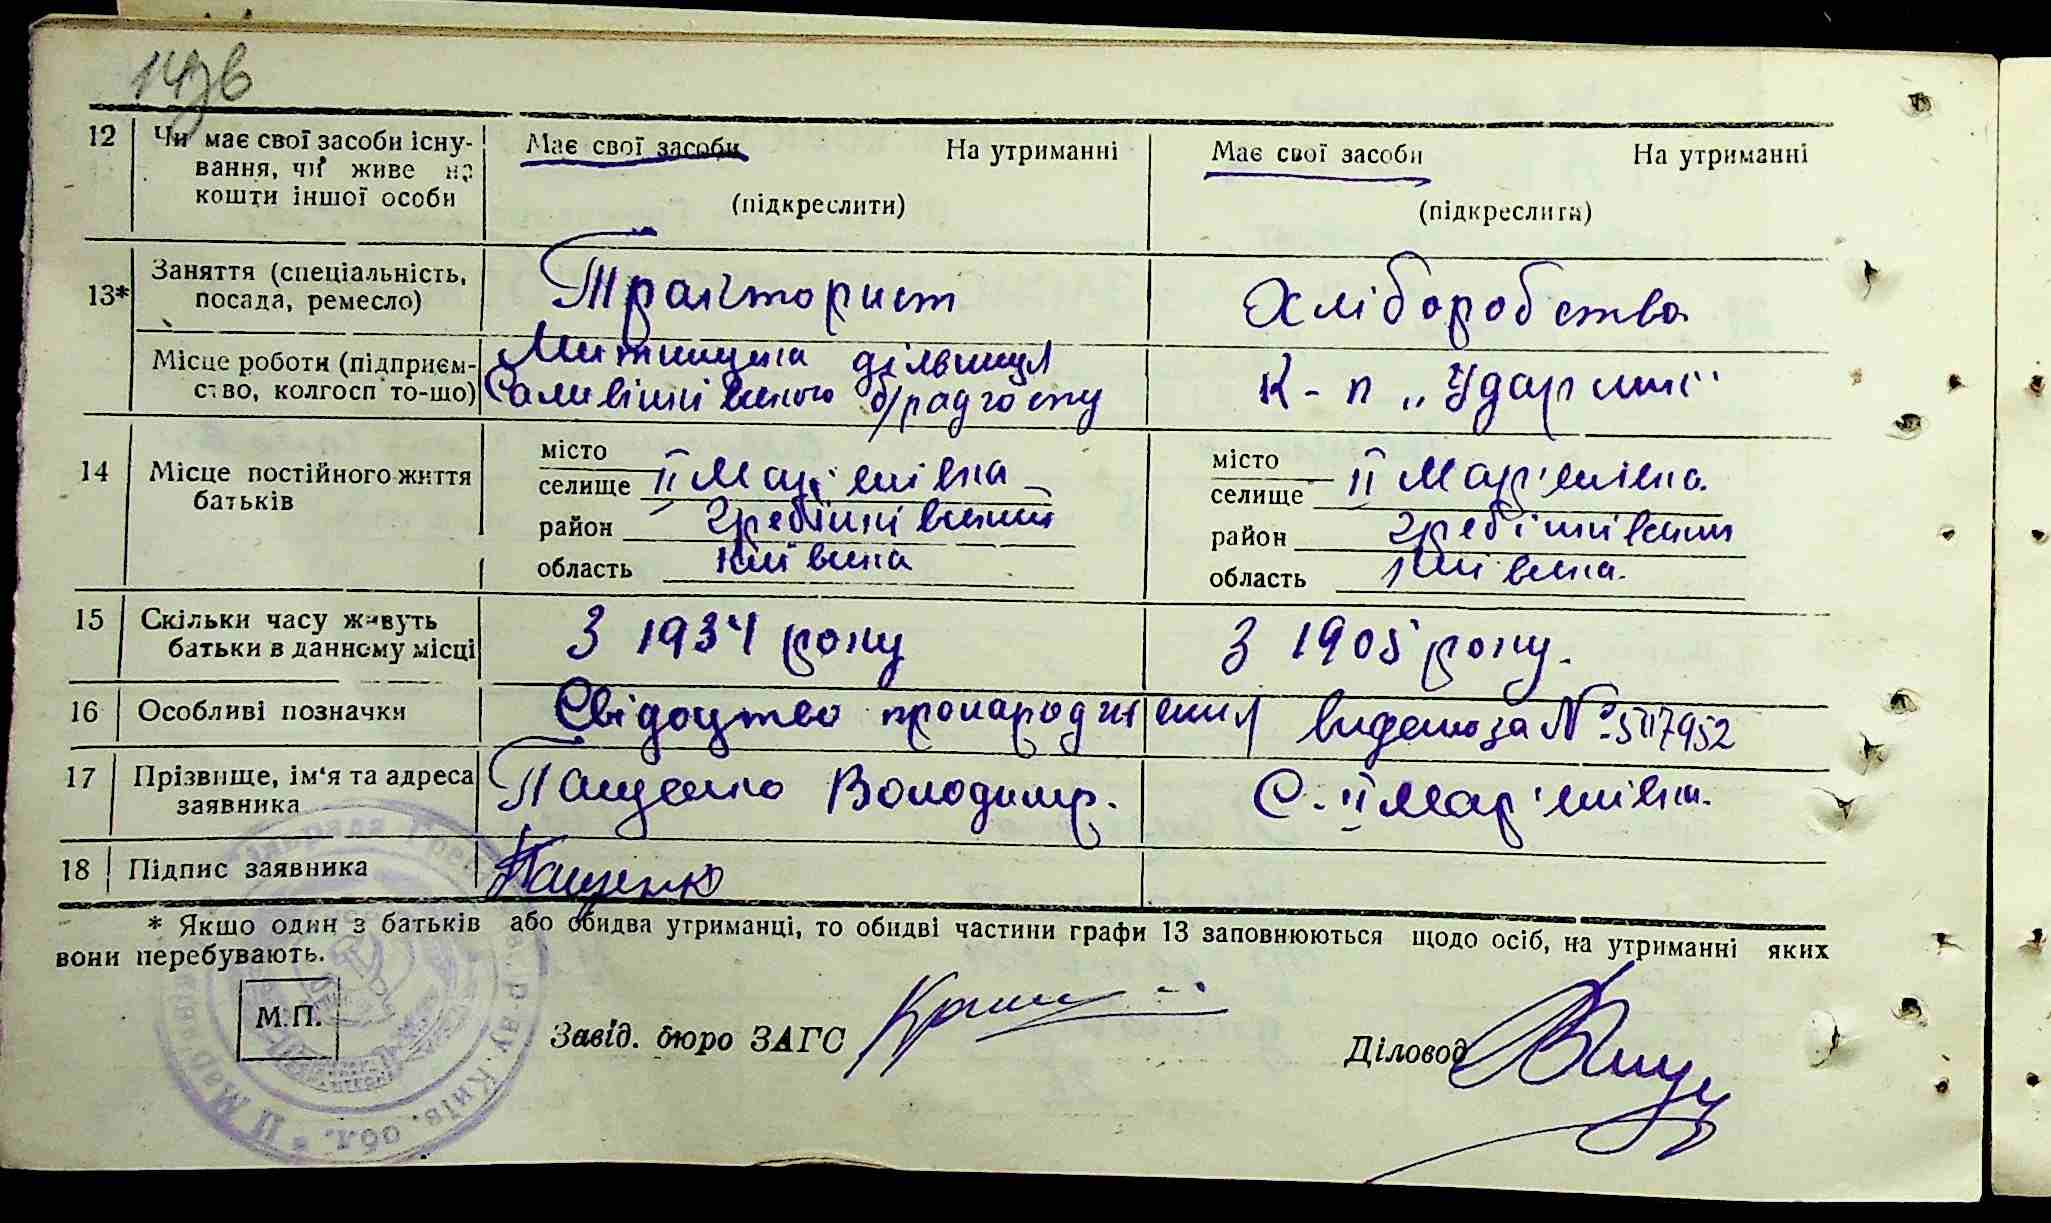 14зв
12 Чи має свої засоби існу- Має свої засоби На утриманні Має свої засоби На утриманні
вання, чи живе на
кошти іншої особи (підкреслити) (підкреслити)
13* Заняття (спеціальність, Тракторист Хліборобство
посада, ремесло)
Місце роботи (підприєм- Митницька дільниця К-п „Ударник"
ство, колгосп то-що) Саливінківського б/радгоспу
14 Місце постійного життя місто місто
батьків селище ІІ Мар'янівка селище ІІ Мар'янівка.
район Гребінківський район Гребінківський
область Київська область Київська.
15 Скільки часу живуть З 1934 року З 1905 року.
батьки в данному місці
16 Особливі позначки Свідоцтво про народження видано за №
17 Прізвище, ім'я та адреса Пащенко Володимр. С. ІІ Мар'янівка.
заявника
18 Підпис заявника Пащенко
* Якщо один з батьків або обидва утриманці, то обидві частини графи 13 заповнюються щодо осіб, на утриманні яких
вони перебувають.
М.П.
Завід. бюро ЗАГС Діловод
Київ. обл. * ІІ Мар